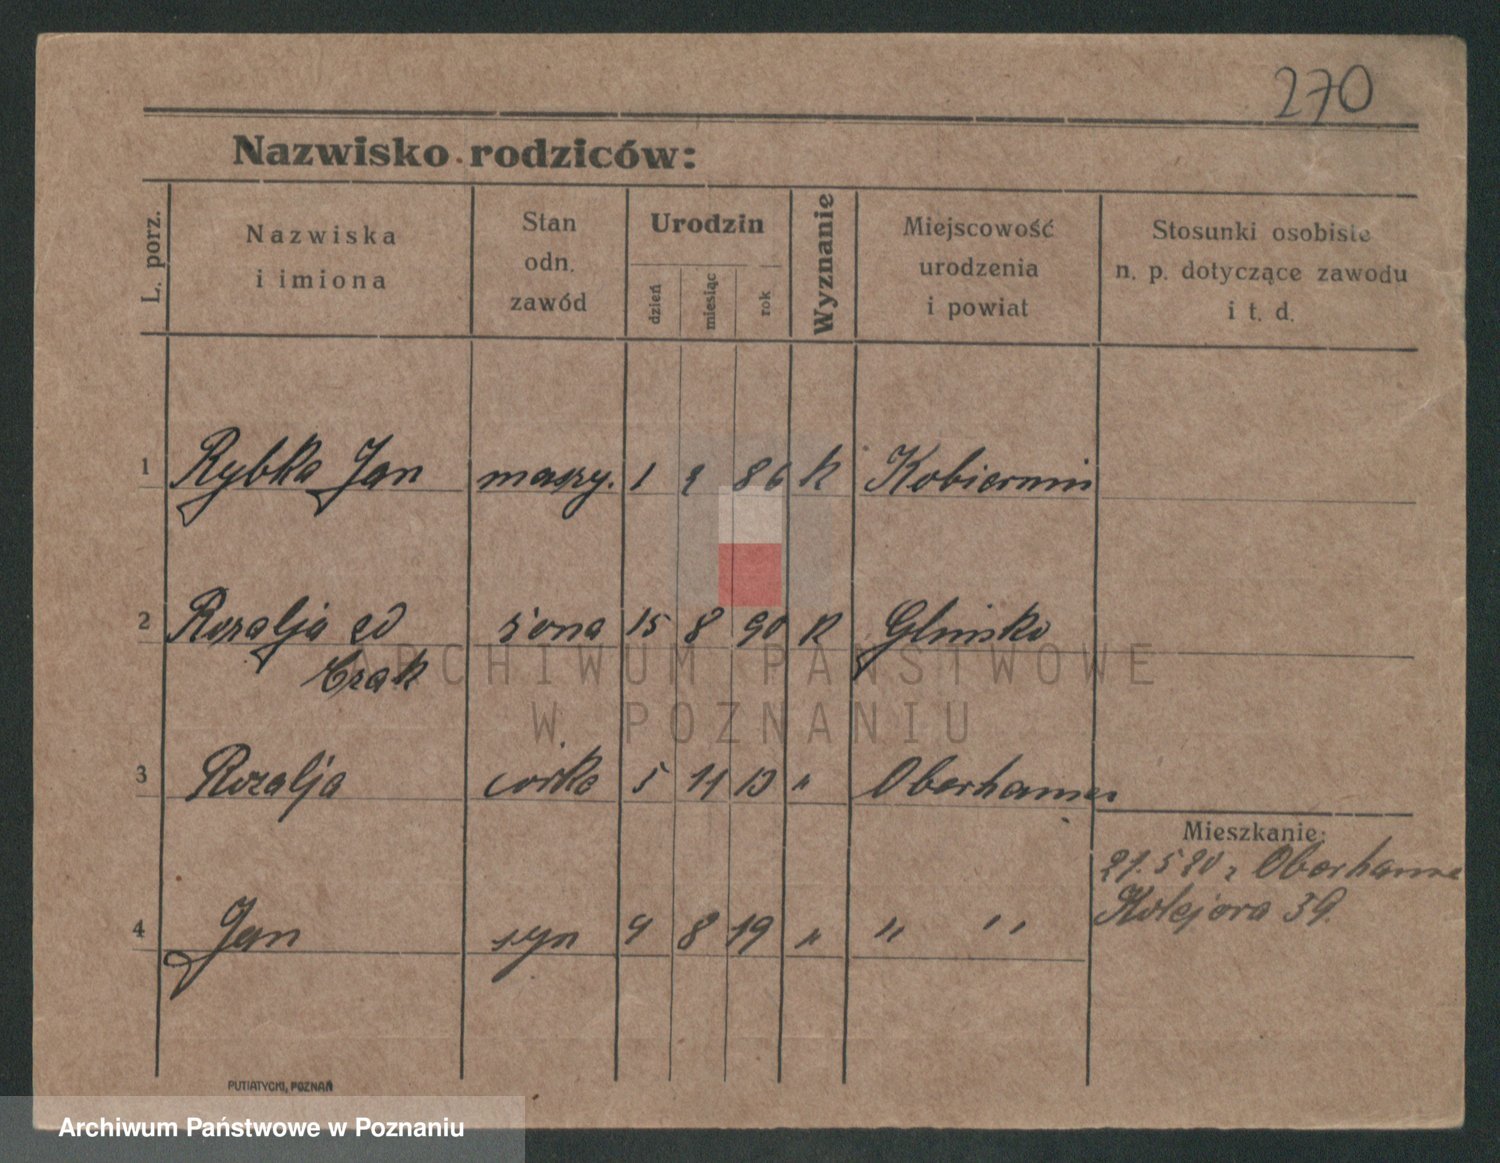 270
Nazwisko rodziców:
L. porz.
Nazwiska
i imiona
Stan
odn.
zawód
Urodzin
dzień
miesiąc
rok
Wyznanie
Miejscowość
urodzenia
i powiat
Stosunki osobiste
n. p. dotyczące zawodu
i t. d.
1 Rybka Jan maszy. 1 2 86 K Kobiernin
2 Rozalja zd żona 15 8 90 K Glinsko
Czak
3 Rozalja córka 5 11 13 "
4 Jan syn 4 8 19 " " "
Mieszkanie:
21. 5 20 z
39.
PUTIATYCKI, POZNAŃ
ARCHIWUM PAŃSTWOWE
W POZNANIU
Archiwum Państwowe w Poznaniu